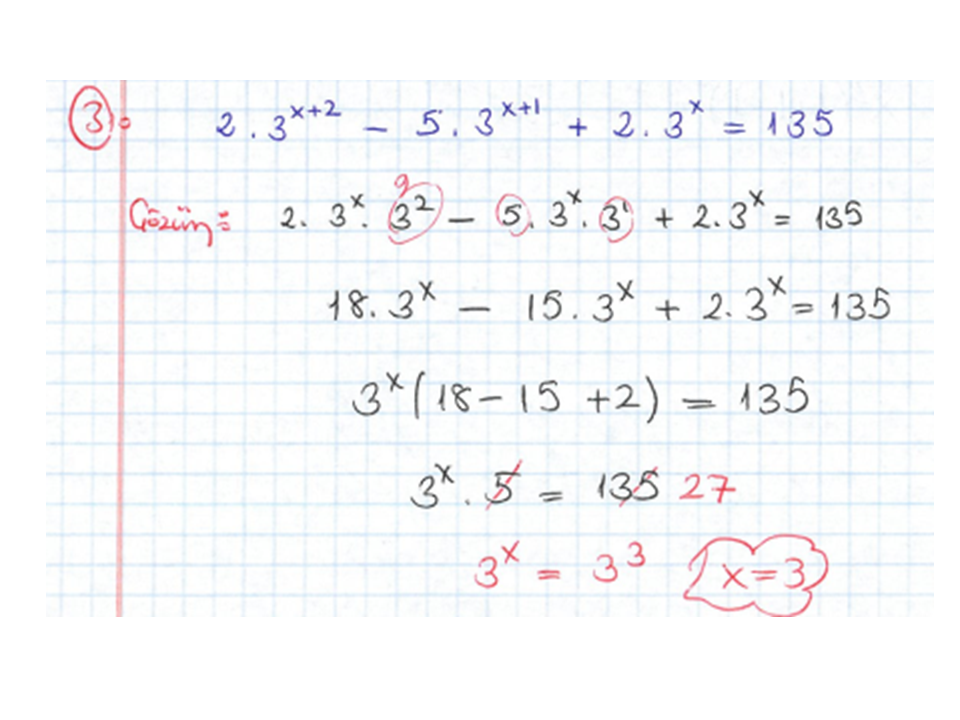 3): 2 . 3^(x+2) − 5 . 3^(x+1) + 2 . 3^x = 135
Çözüm: 2 . 3^x . 3^2 − 5 . 3^x . 3^1 + 2 . 3^x = 135
9
18 . 3^x − 15 . 3^x + 2 . 3^x = 135
3^x (18 − 15 + 2) = 135
3^x . 5 = 135 27
3^x = 3^3 x = 3